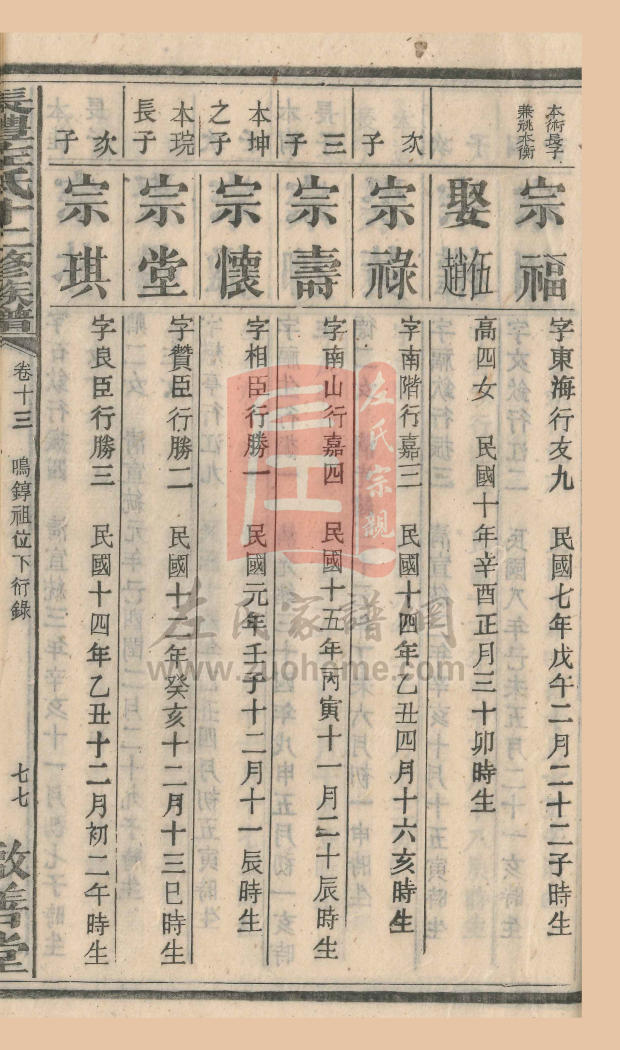 本術長子
兼祧本衡
宗福
字東海行友九 民國七年戊午二月二十二子時生
娶趙伍
高四女 民國十年辛酉正月三十卯時生
次子
宗祿
字南階行嘉三 民國十四年乙丑四月十六亥時生
三子
宗壽
字南山行嘉四 民國十五年丙寅十一月二十辰時生
本坤之子
宗懷
字相臣行勝一 民國元年壬子十二月十一辰時生
本琓長子
宗堂
字贊臣行勝二 民國十二年癸亥十二月十三巳時生
次子
宗琪
字良臣行勝三 民國十四年乙丑十二月初二午時生
左氏十二修族譜
卷十三 鳴錞祖位下衍錄
七七
啟善堂
左氏宗親
左氏家譜網
www.zuohome.com